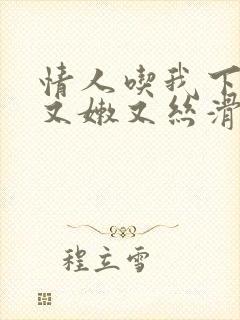 情人喫我下
又嫩又丝滑
程立雪